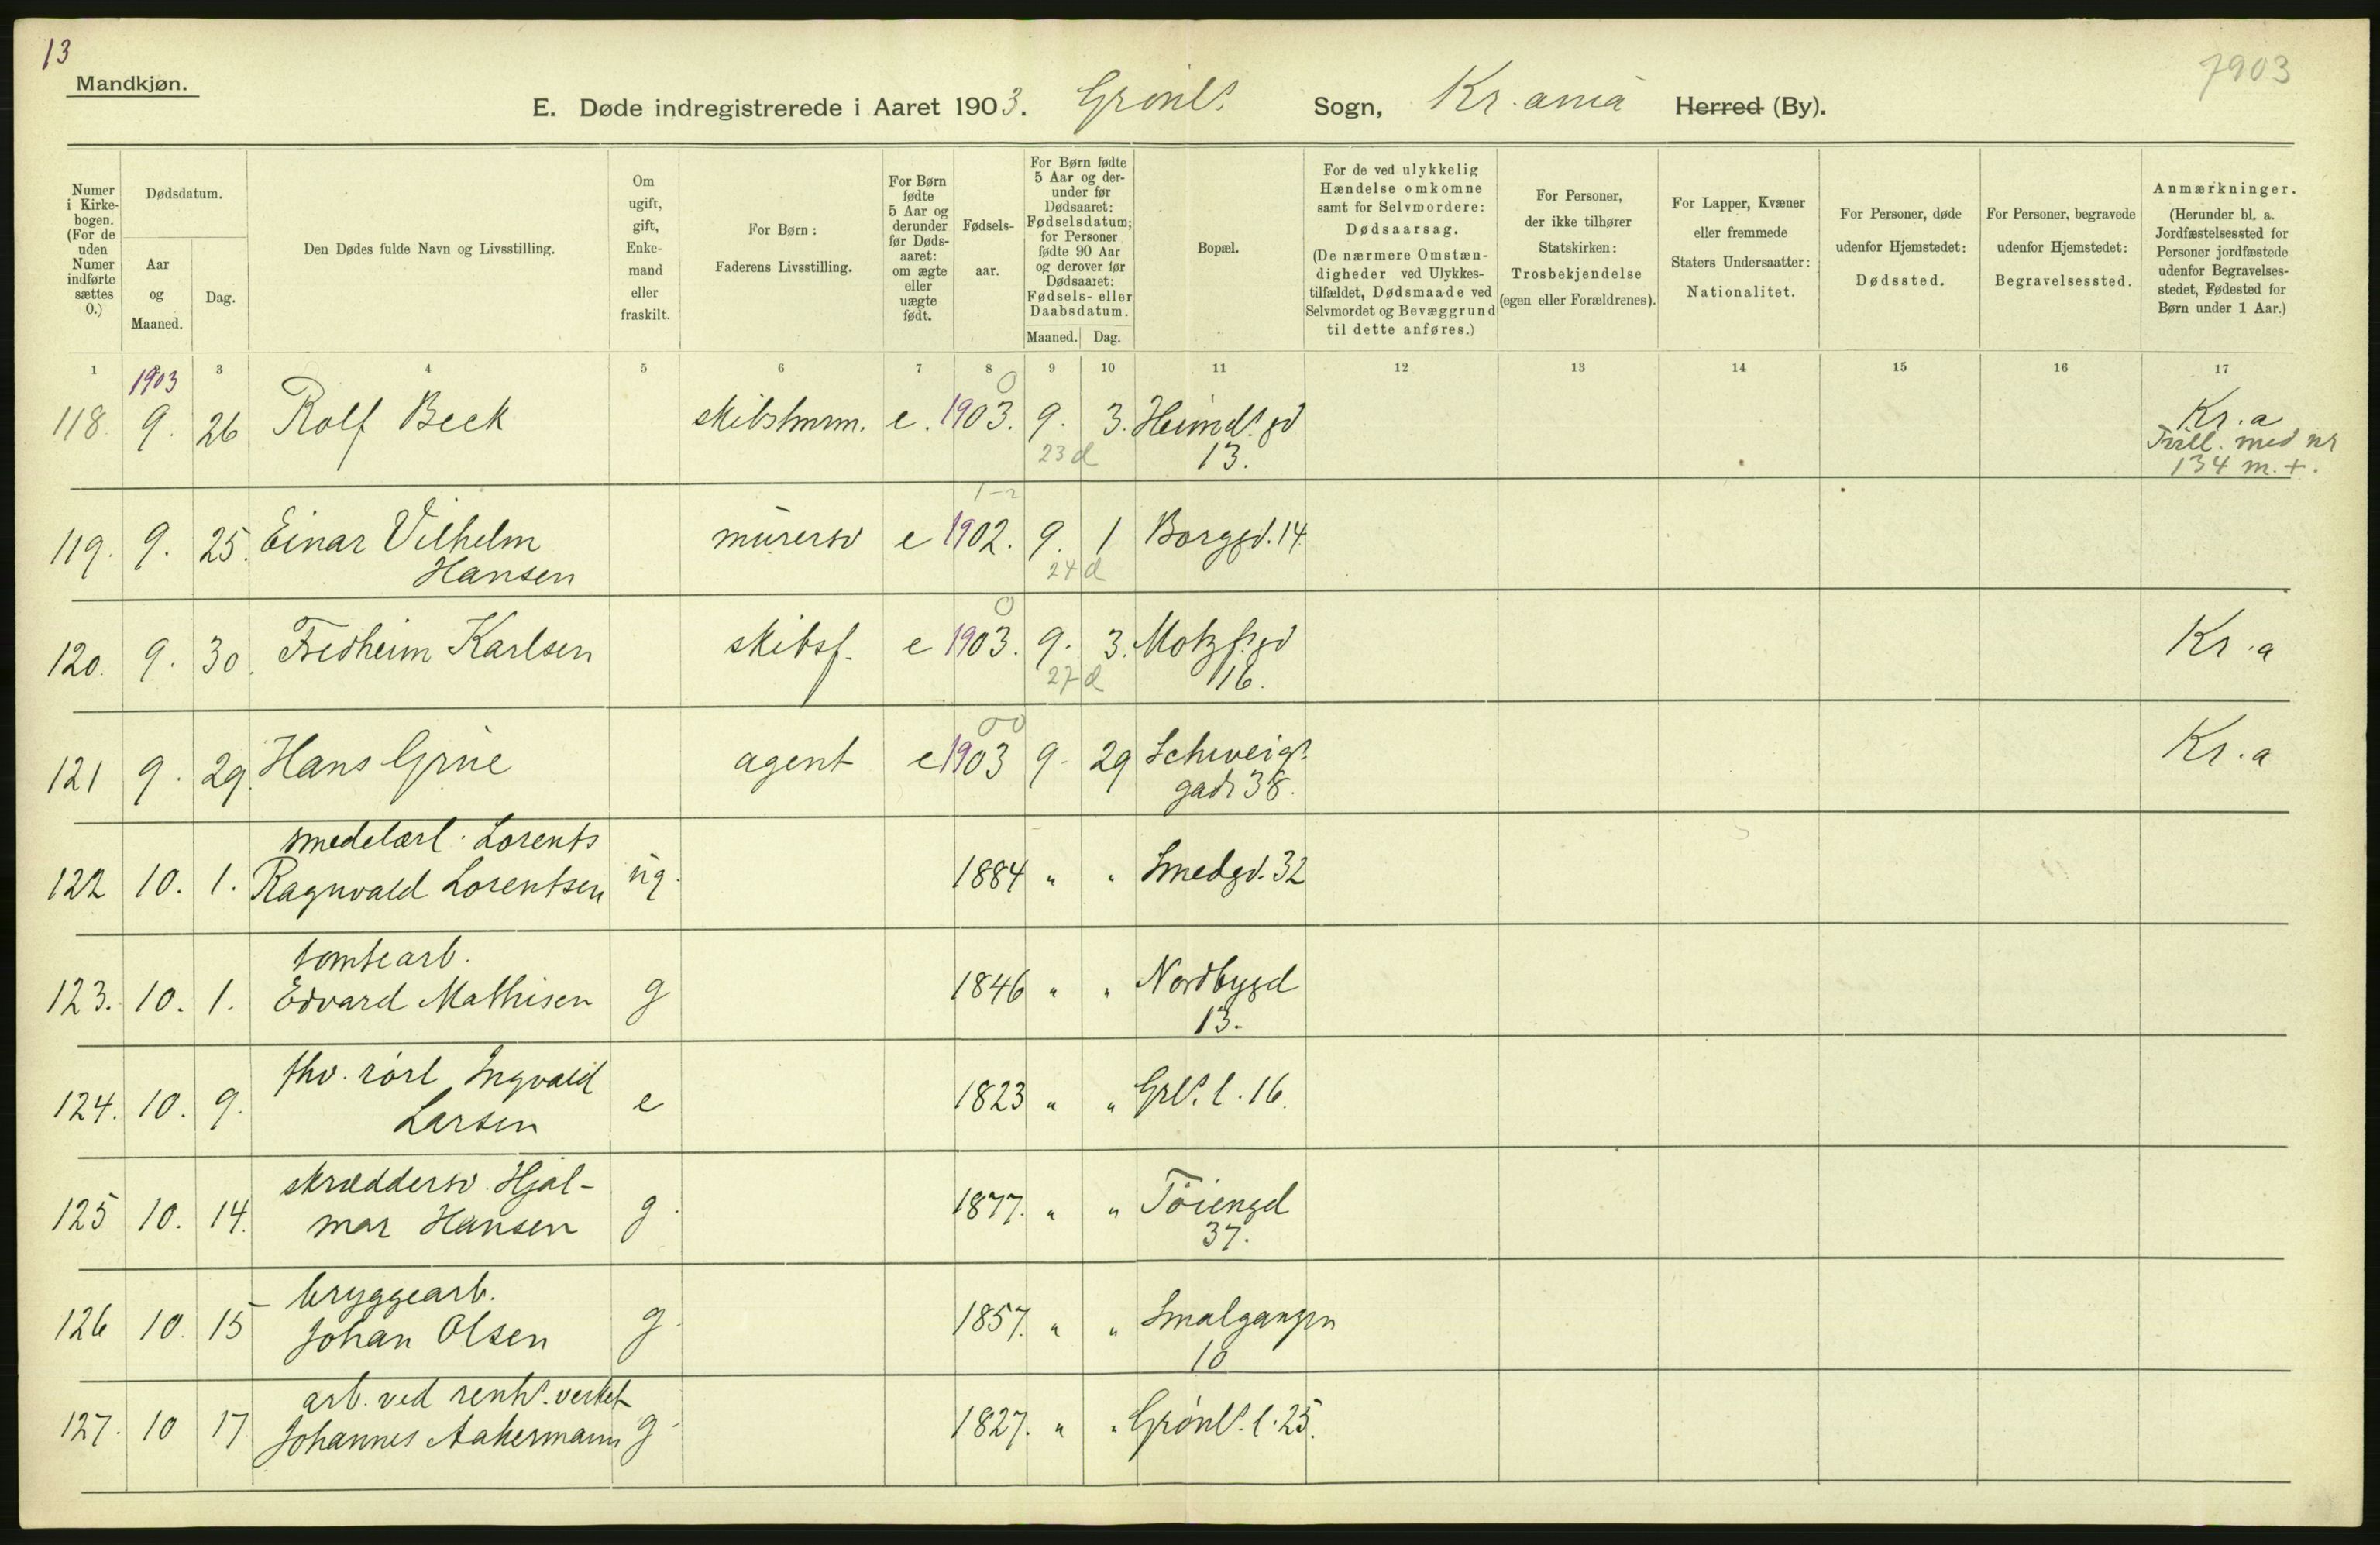 13
7903
Mandkjøn.
E. Døde indregistrerede i Aaret 1903. Grønls Sogn, Kr.ania Herred (By).
Numer i Kirkebogen. (For de uden Numer indførte sættes 0.)
Dødsdatum.
Aar og Maaned.
Dag.
Den Dødes fulde Navn og Livsstilling.
Om ugift, gift, Enkemand eller fraskilt.
For Børn: Faderens Livsstilling.
For Børn fødte 5 Aar og derunder før Dødsaaret: om ægte eller uægte født.
Fødselsaar.
For Børn fødte 5 Aar og derunder før Dødsaaret: Fødselsdatum; for Personer fødte 90 Aar og derover før Dødsaaret: Fødsels- eller Daabsdatum.
Maaned. Dag.
Bopæl.
For de ved ulykkelig Hændelse omkomne samt for Selvmordere: Dødsaarsag.
(De nærmere Omstændigheder ved Ulykkestilfældet, Dødsmaade ved Selvmordet og Bevæggrund til dette anføres.)
For Personer, der ikke tilhører Statskirken: Trosbekjendelse (egen eller Forældrenes).
For Lapper, Kvæner eller fremmede Staters Undersaatter: Nationalitet.
For Personer, døde udenfor Hjemstedet: Dødssted.
For Personer, begravede udenfor Hjemstedet: Begravelsessted.
Anmærkninger. (Herunder bl. a. Jordfæstelsessted for Personer jordfæstede udenfor Begravelsesstedet, Fødested for Børn under 1 Aar.)
1 3 4 5 6 7 8 9 10 11 12 13 14 15 16 17
1903
118 9. 26 Rolf Beck skibstmrm. e. 1903. 9. 3. Heimds. gd Kr.a
0 23 d 13. Tvill. med nr
134 m. +.
119. 9. 25. Einar Vilhelm murersv e 1902. 9. 1 Borggd. 14
Hansen 24 d
120. 9. 30. Fredheim Karlsen skibsf. e 1903. 9. 3. Motzfs. gd Kr.a
0 27 d 16.
121 9. 29. Hans Grue agent e 1903 9. 29 Schweigs. Kr.a
00 gade 38.
smedelærl. Lorents
122 10. 1. Ragnvald Lorentsen ug. 1884 " " Smedgd. 32
tomtearb.
123. 10. 1. Edvard Mathisen g 1846 " " Nordbygd
13.
fhv. rørl Ingvald
124. 10. 9. Larsen e 1823 " " Grls. l. 16.
skræddersv. Hjal-
125 10. 14. mar Hansen g. 1877. " " Töiengd
37.
bryggearb.
126 10. 15 Johan Olsen g. 1857. " " Smalgangen
10
arb. ved renhs. verket
127. 10 17 Johannes Aakermann g. 1827. " " Grønls. l. 25.